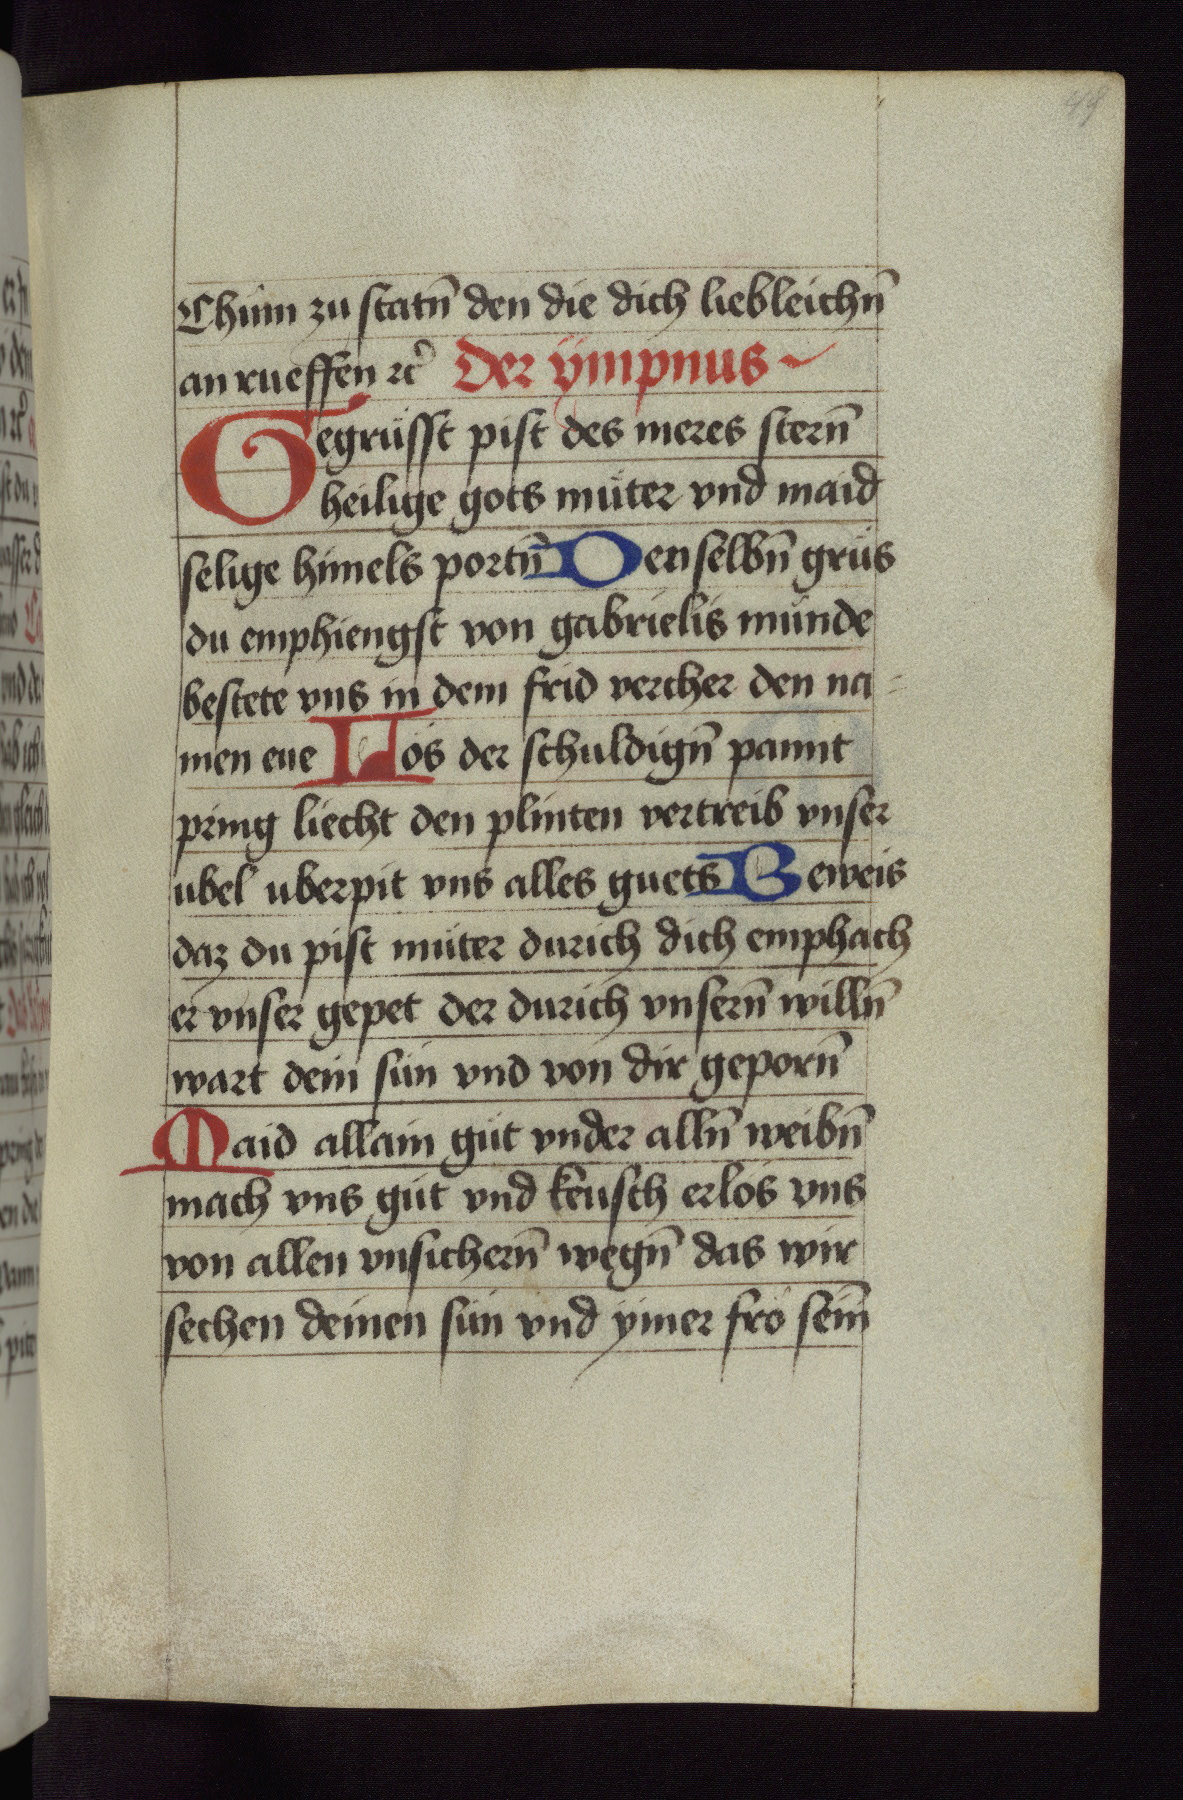 Chům zu statn̄ den die dich liebleichn̄
an rueffen ꝛc̄ Der ÿmpnus
Gegrüsst pist des meres stern̄
heilige gots müter vnd maid
selige himels portn̄ Den selbn̄ grüs
du emphiengst von gabrielis munde
bestete vns in dem frid vercher den na=
men eue Lös der schuldign̄ pannt
pring liecht den plinten vertreib vnser
ubel uberpit vns alles guets Beweis
daz du pist müter durich dich emphach
er vnser gepet der durich vnsern̄ willn̄
wart dein sün vnd von dir geporn̄
Maid allain güt vnder alln̄ weibn̄
mach vns güt vnd keusch erlös vns
von allen vnsichern̄ wegn̄ das wir
sechen deinen sün vnd ÿmer frö sein̄